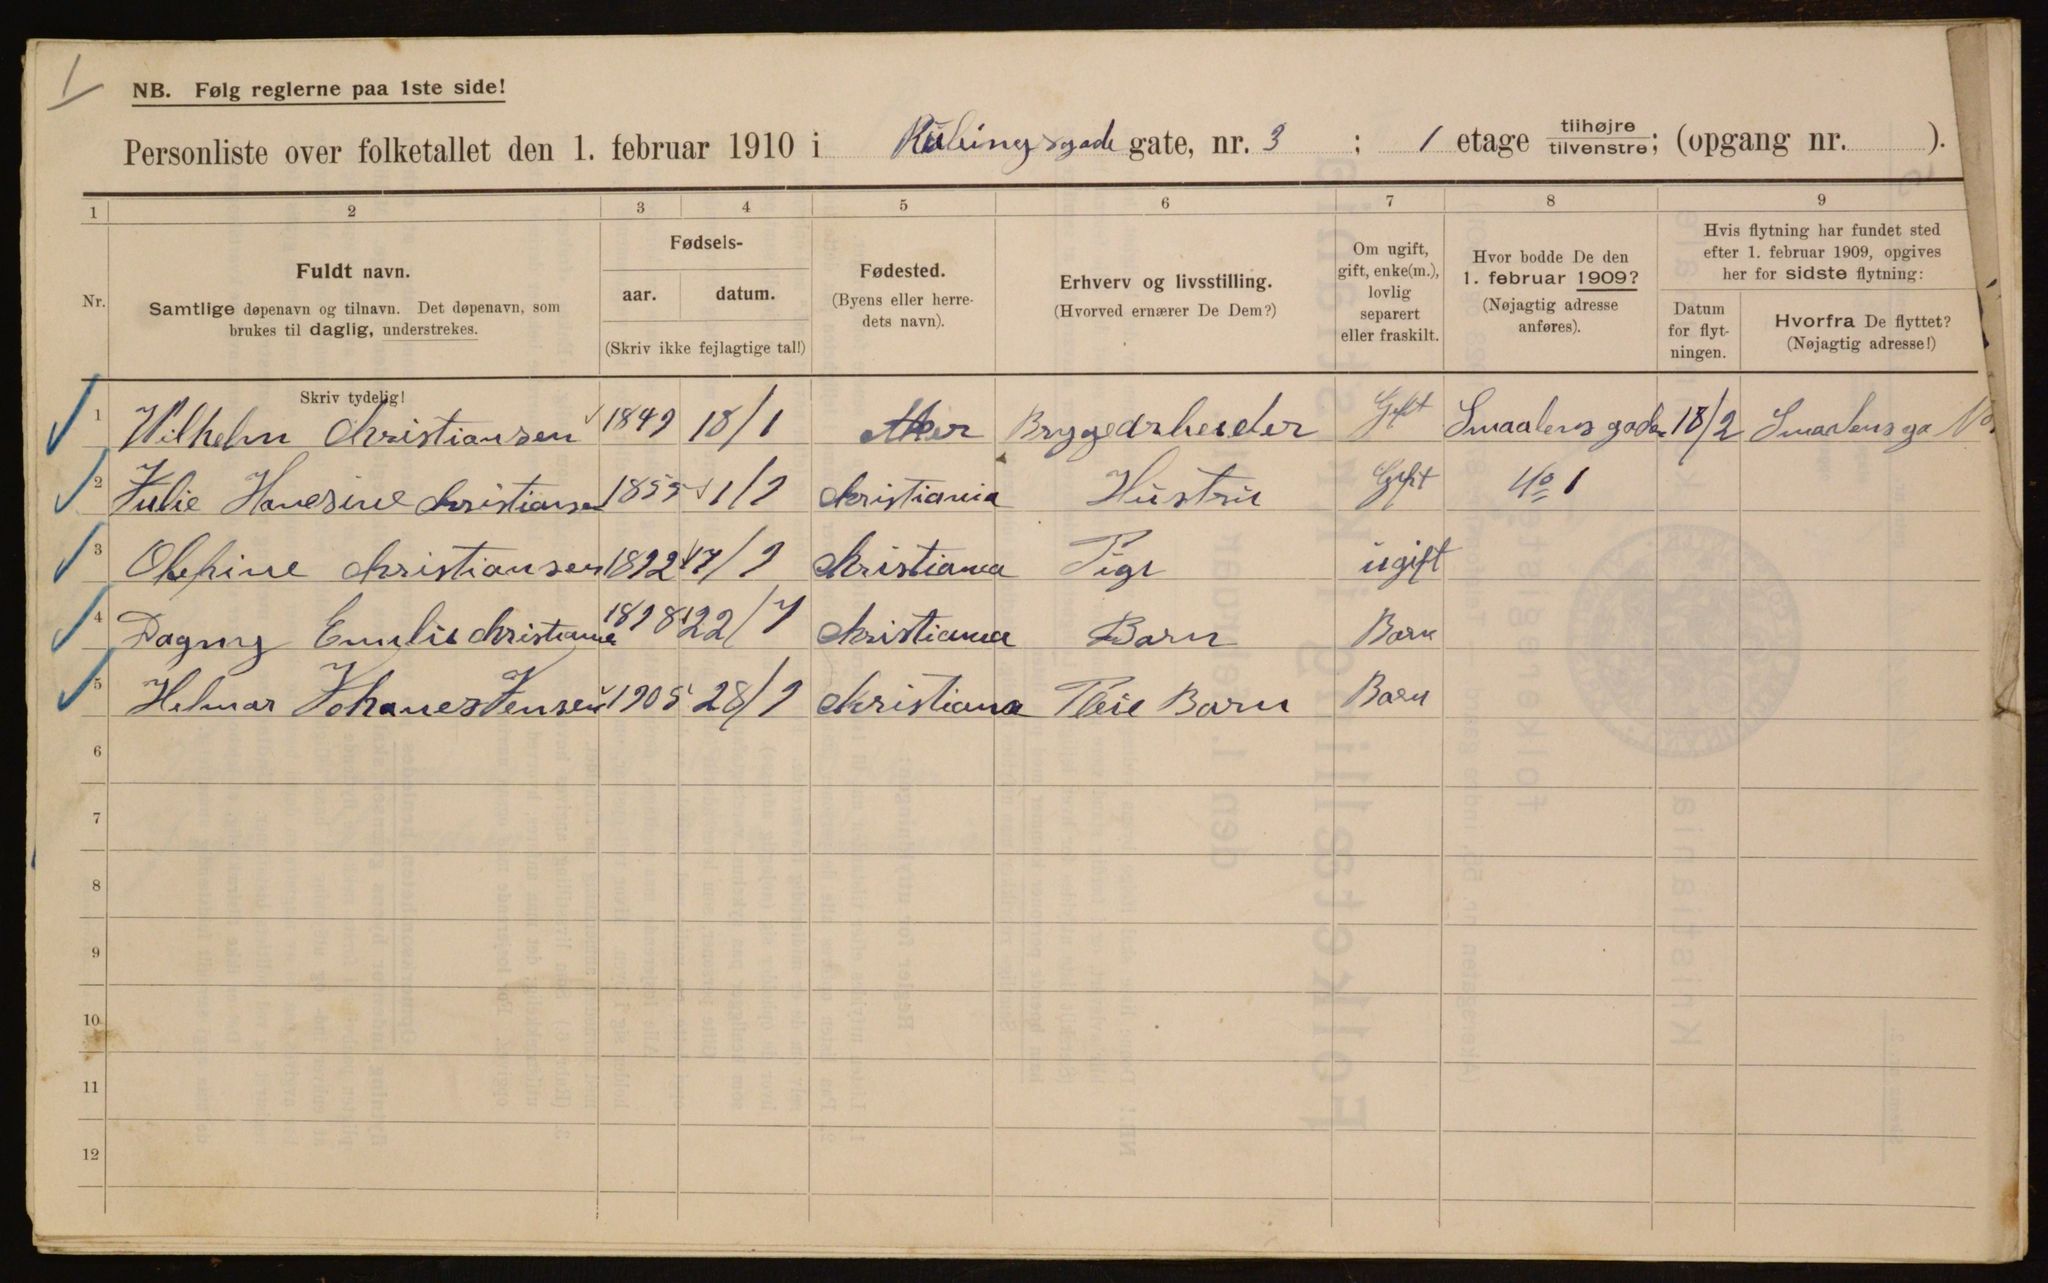 1
NB. Følg reglerne paa 1ste side!
Personliste over folketallet den 1. februar 1910 i Rubingsgade gate, nr. 3 ; 1 etage tilhøjre tilvenstre; (opgang nr. ).
1 2 3 4 5 6 7 8 9
Nr.
Fuldt navn.
Samtlige døpenavn og tilnavn. Det døpenavn, som
brukes til daglig, understrekes.
Fødsels-
aar. datum.
(Skriv ikke fejlagtige tal!)
Fødested.
(Byens eller herre-
dets navn).
Erhverv og livsstilling.
(Hvorved ernærer De Dem?)
Om ugift,
gift, enke(m.),
lovlig
separert
eller fraskilt.
Hvor bodde De den
1. februar 1909?
(Nøjagtig adresse
anføres).
Hvis flytning har fundet sted
efter 1. februar 1909, opgives
her for sidste flytning:
Datum
for flyt-
ningen.
Hvorfra De flyttet?
(Nøjagtig adresse!)
Skriv tydelig!
1 Wilhelm Christiansen 1849 18/1 Aker Bryggearbeider Gift Smaalensgaden 18/2 Smaalensga No
2 Julie Hansine Christiansen 1855 1/9 Christiania Hustru Gift No 1
3 Christiansen 1892 17/9 Christiania Pige ugift
4 Dagny Emilie Christianse 1898 22/7 Christiania Barn Barn
5 Helmar Johanes Jensen 1905 28/9 Christiana Pleie Barn Barn
6
7
8
9
10
11
12